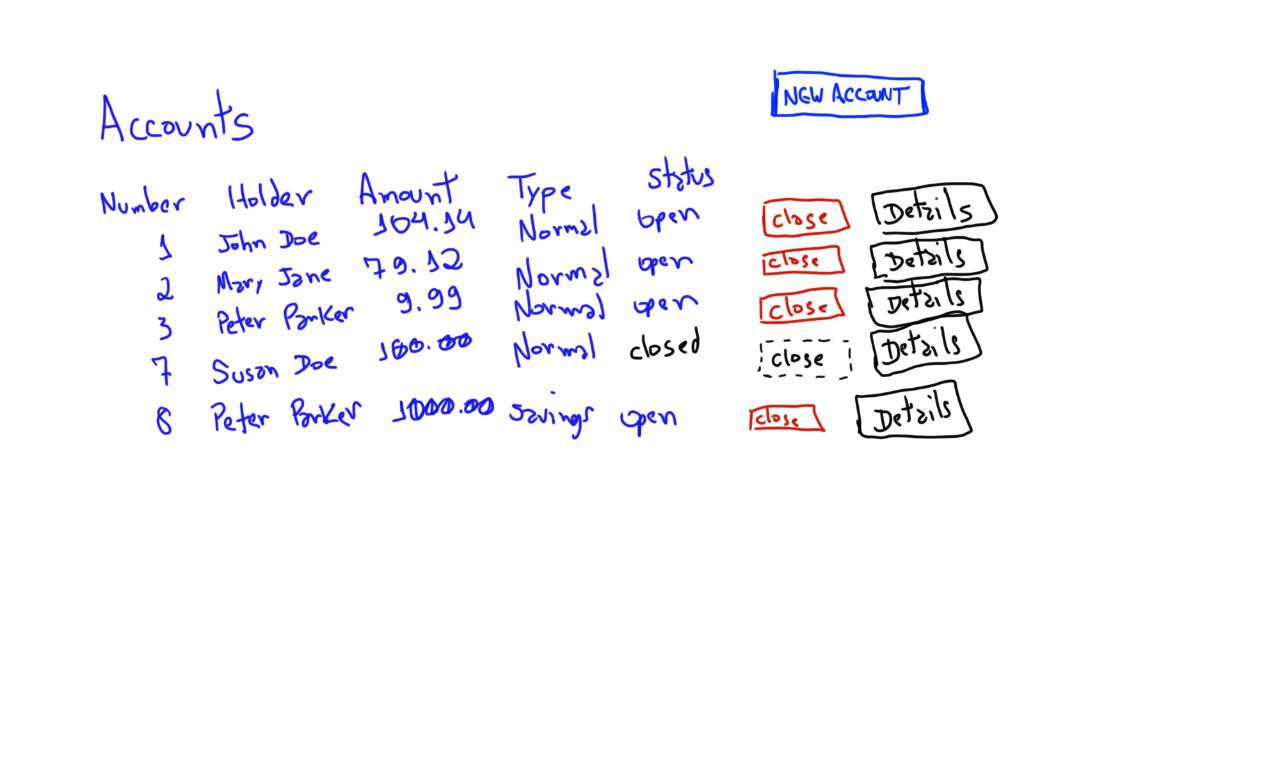 NEW ACCOUNT
Accounts
Number Holder Amount Type status
1 John Doe 104.14 Normal open close Details
2 Mary Jane 79.12 Normal open close Details
3 Peter Parker 9.99 Normal open close Details
7 Susan Doe 100.00 Normal closed close Details
8 Peter Parker 1000.00 savings open close Details